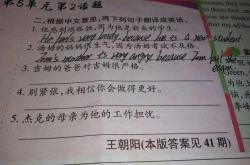 第5单元 第2话题
二、根据中文意思,将下列句子翻译成英语。
1. 他感到很孤独,因为他是新来的学生。
He feels very lonely, because he is a new student
2. 汤姆的妈妈很生气,因为汤姆考试不及格。
mother is very angry because Tom fail the
exam.
3. 吉姆的爸爸对吉姆很严格。
4. 别紧张,我相信你会做得更好。
5. 杰克的母亲为他的工作担忧。
王朝阳(本版答案见41期)